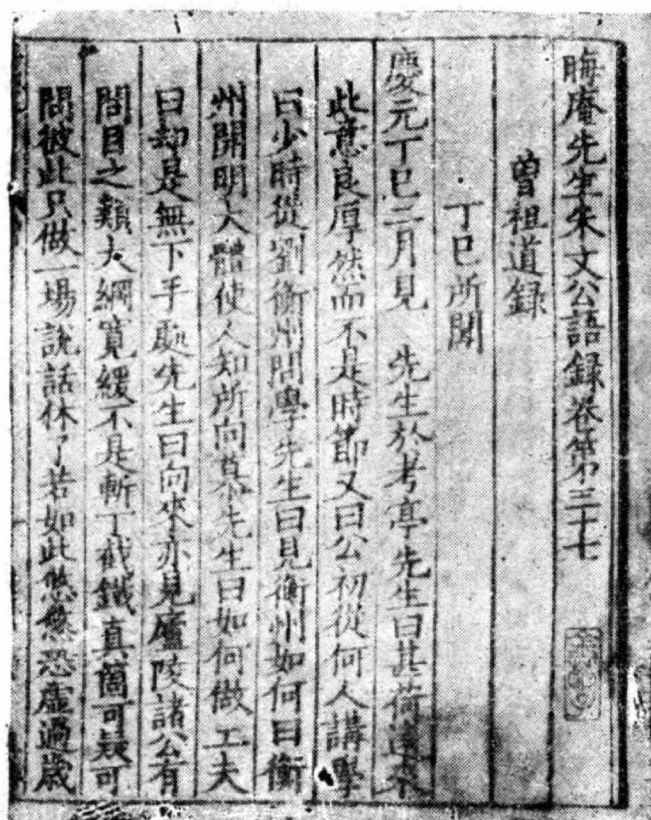 晦庵先生朱文公語録卷第三十七
曾祖道録
丁巳所聞
慶元丁巳三月見 先生於考亭先生曰甚荷遠來
此意良厚然而不是時節又曰公初從何人講學
曰少時從劉衡州問學先生曰見衡州如何曰衡
州開明大體使人知所向慕先生曰如何做工夫
曰却是無下手處先生曰向來亦見廬陵諸公有
問目之類大綱寬緩不是斬丁截鐵真箇可疑可
問彼此只做一場說話休了若如此悠悠恐虛過歲